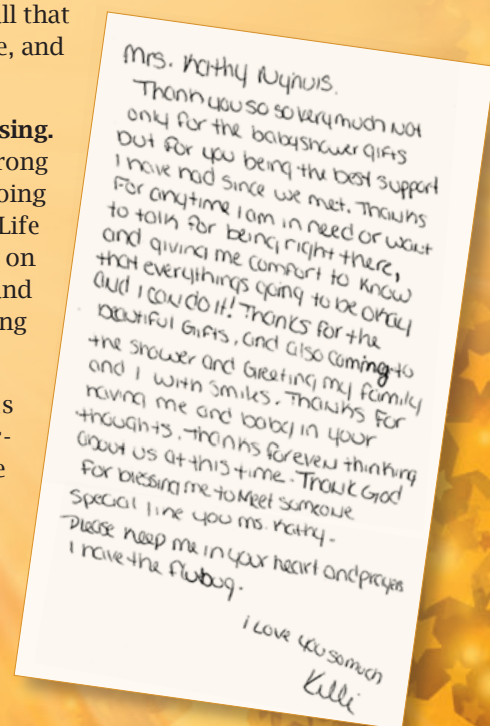 ll that
e, and
sing.
rong
oing
Life
on
nd
ng
s
-
e
Mrs. Kathy Nynuis.
Thank you so so very much NOt
only for the babyshower gifts
but for you being the best support
I have had since we met. Thanks
For anytime I am in need or want
to talk for being right there,
and giving me comfort to know
that everythings going to be okay
and I can do it! Thanks for the
beautiful Gifts, and also coming to
the shower and Greeting my family
and I with smiles. Thanks for
having me and baby in your
thoughts. Thanks for even thinking
about us at this time. Thank God
For blessing me to Meet someone
special like you ms. Kathy.
Please keep me in your heart and prayers
I have the flubug.
i Love you so much
Killi